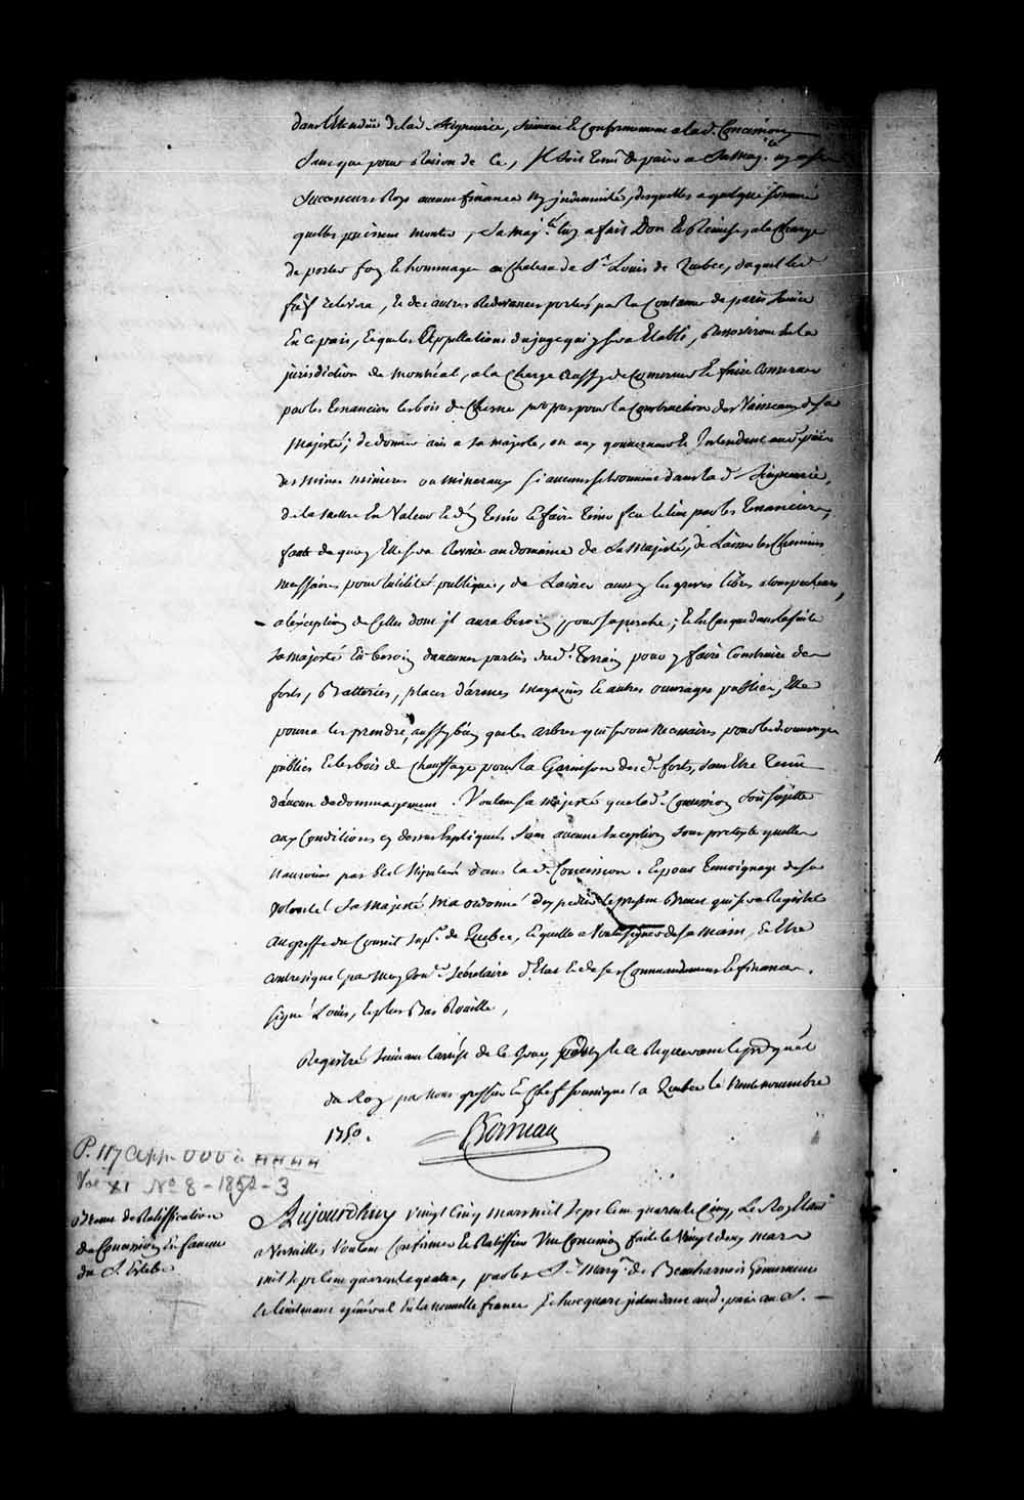 dans l'Etendüe de lad. Seigneurie, suivant et Conformement a lad. Concession
Sans que pour raison de Ce, Il soit tenu de païer a Sa Maj.té ny a ses
Successeurs Roys aucune finance ny indemnité, desquelles a quelque somme
quelles puissent monter, Sa Maj.té luy a fait Don et Remise, a la charge
de porter foy et hommage au Chateau de S.t Louis de Quebec, duquel led.
fief relevera, et des autres Redevances portées par la Coutume de paris suivie
En Ce païs, Et que les Appellations du juge qui y sera Etabli, Ressortiront de la
jurisdiction de Montréal, a la Charge aussy de Conserver et faire Conserver
par les tenanciers les bois de Chesne propres pour la Construction des Vaisseaux de Sa
Majesté; de donner avis a Sa Majesté, ou aux gouverneur et Intendant aud. païs
des Mines minieres ou mineraux si aucuns se trouvent dans lad. Seigneurie,
de la mettre En Valeur et d'y tenir et faire tenir feu et lieu par les tenanciers,
faute de quoy Elle sera Reünie au domaine de Sa Majesté, de Laisser les Chemins
necessaires pour lutilité publique, de Laisser aussy les greves libres a tous pecheurs,
a l'exception de Celles dont il aura besoin pour sa pesche; Et En Cas que dans la suite
Sa Majesté Eut besoin d'aucunes parties dud. terrain pour y faire Construire des
forts, Batteries, places d'armes Magazins Et autres ouvrages publics, Elle
pourra les prendre, aussy bien que les arbres qui seront necessaires pour lesd. ouvrages
publics Et les bois de Chauffage pour la Garnison desd. forts, sans Etre tenüe
d'aucun dedommagement. Voulant Sa Majesté que lad. Concession soit sujette
aux Conditions cy dessus Expliquées sans aucune Exception sous pretexte quelles
nauroient pas Eté stipulées dans lad. Concession. Et pour temoignage de sa
Volonté Sa Majesté M'a ordonné d'expedier le present Brevet qui sera Registré
au greffe du Conseil Sup.r de Quebec, et quelle a Voulu signer de sa Main, Et Etre
contresigné par Moy Con.er Secretaire d'Etat et de ses Commandemens et finances.
Signé Louis, et plus Bas Rouillé,
Registré suivant l'arrêt de ce jour Et ce Requerant le procureur general
du Roy par Nous greffier En Chef soussigné a Quebec le novembre
1750. Boisseau
P. 117 App. OOO à HHHH
Vol XI No 8 - 1852-3
Brevet de Ratiffication
de Concession En faveur
du S. Estebe
Aujourdhuy Vingt Cinq mars mil sept Cent quarente Cinq, Le Roy Etant
a Versailles, Voulant Confirmer Et Ratiffier Une Concession faite le Vingt deux mars
mil sept Cent quarente quatre, par les S.rs Marq.is de Beauharnois Gouverneur
et lieutenant général En la nouvelle france, Et hocquart jntendant aud. païs au S.